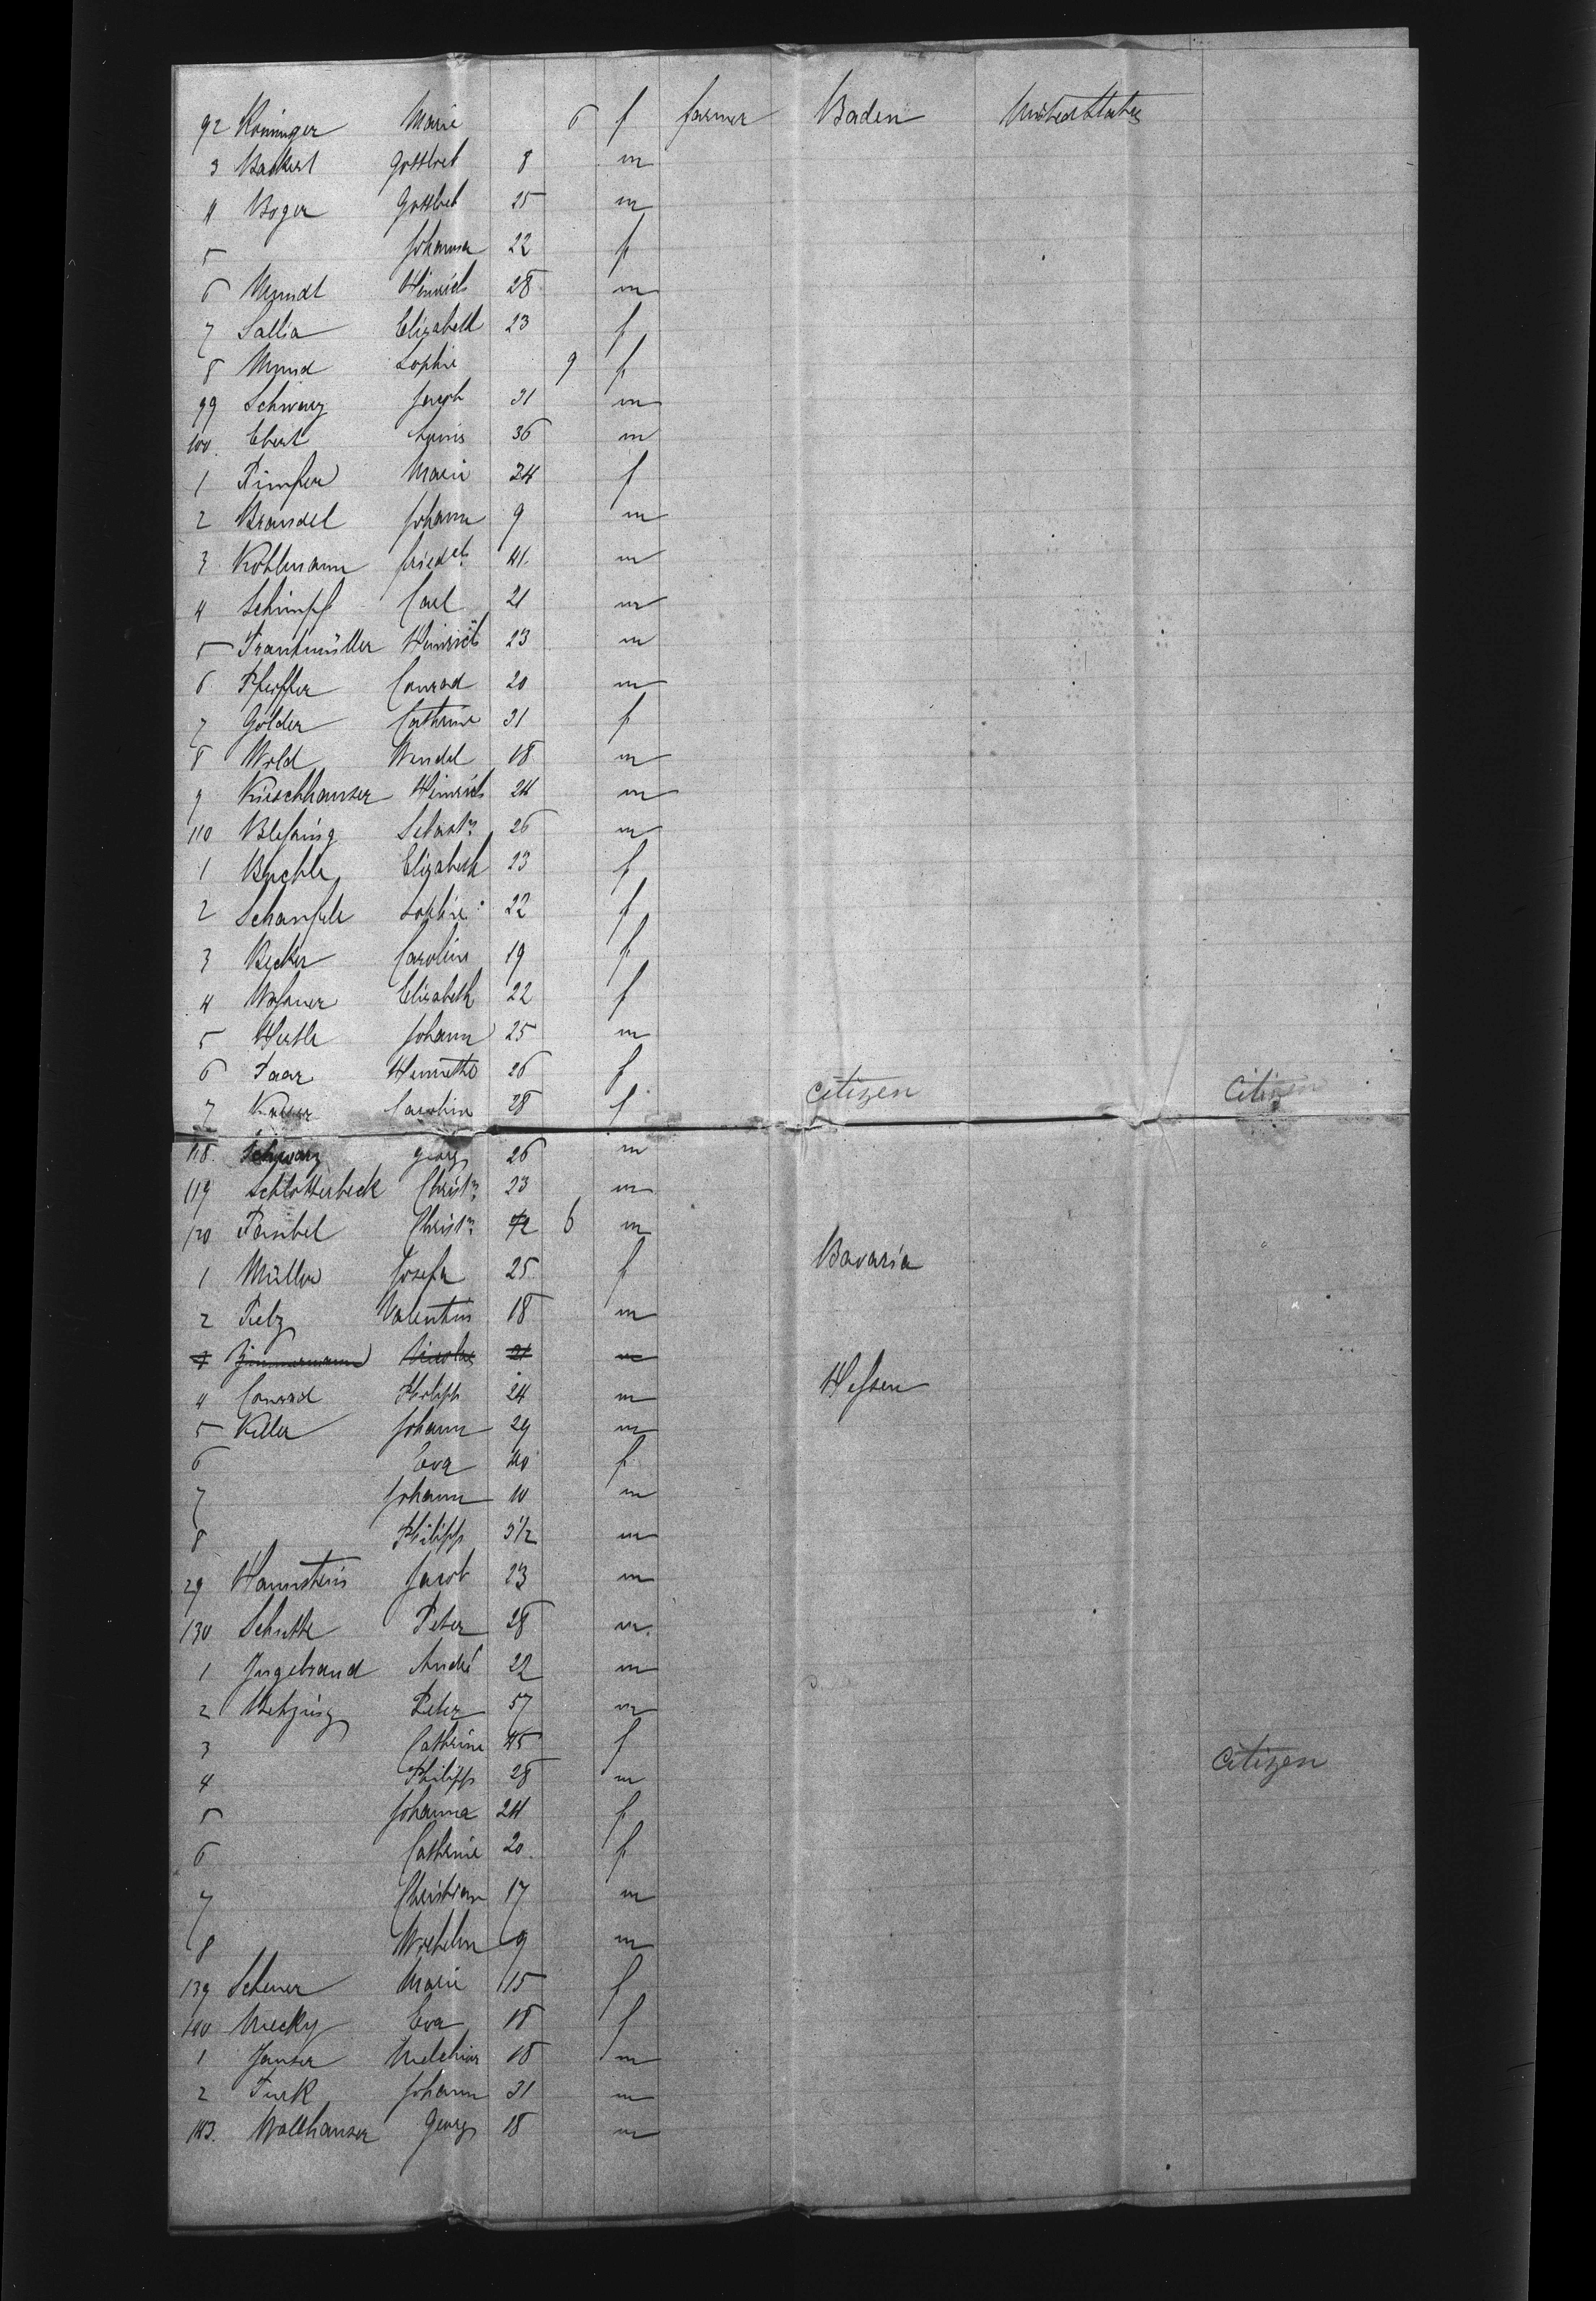 92 Koninger Marie 6 f farmer Baden United States
3 Gottlieb 8 m
4 Boger Gottlieb 25 m
5 Johanna 22 f
6 Mundt Heinrich 28 m
7 Sallia Elizabeth 23 f
8 Mund Sophie 9 f
99 Schwarz Jacob 31 m
100. Ebert Louis 36 m
1 Marie 24 f
2 Brandel Johann 9 m
3 Kohlmann Friedch. 41. m
4 Schimpf Carl 21 m
5 Trautmüller Heinrich 23 m
6. Pfeiffer Conrad 20 m
7 Golder Cathrine 31 f
8 Wold Wendel 18 m
9 Kirschhauser Heinrich 24 m
110 Bleſsing Sebastn. 26 m
1 Buchle Elizabeth 23 f
2 Schaufele Sophie 22 f
3 Becker Caroline 19 f
4 Elizabeth 22 f
5 Hertle Johann 25 m
6 Saar Henriette 26 f Citizen Citizen
7 Caroline 28 f
118. Schwarz Georg 26 m
119 Schlotterbeck Christn. 23 m
120 Faubel Christn. 6 m
1 Müller Josefa 25 f Bavaria
2 Pelz Valentin 18 m
Zimmermann Nicolas 21 m
4 Conrad Philipp 24 m Heſsen
5 Keller Johann 29 m
6 Eva 40 f
7 Johann 10 m
8 Philipp 3½ m
29 Hannstein Jacob 23 m
130 Schutte Peter 28 m.
1 Ingebrand André 22 m
2 Peter 57 m
3 Cathrine 45 f Citizen
4 Philipp 28 m
5 Johanna 24 f
6 Catherine 20. f
7 Christian 17 m
8 Wilhelm 9 m
139 Scheuer Marie 15 f
140 Mecky Eva 18 f
1 Janser Melchior 18 m
2 Turk Johann 31 m
143. Wallhauser Georg 18 m